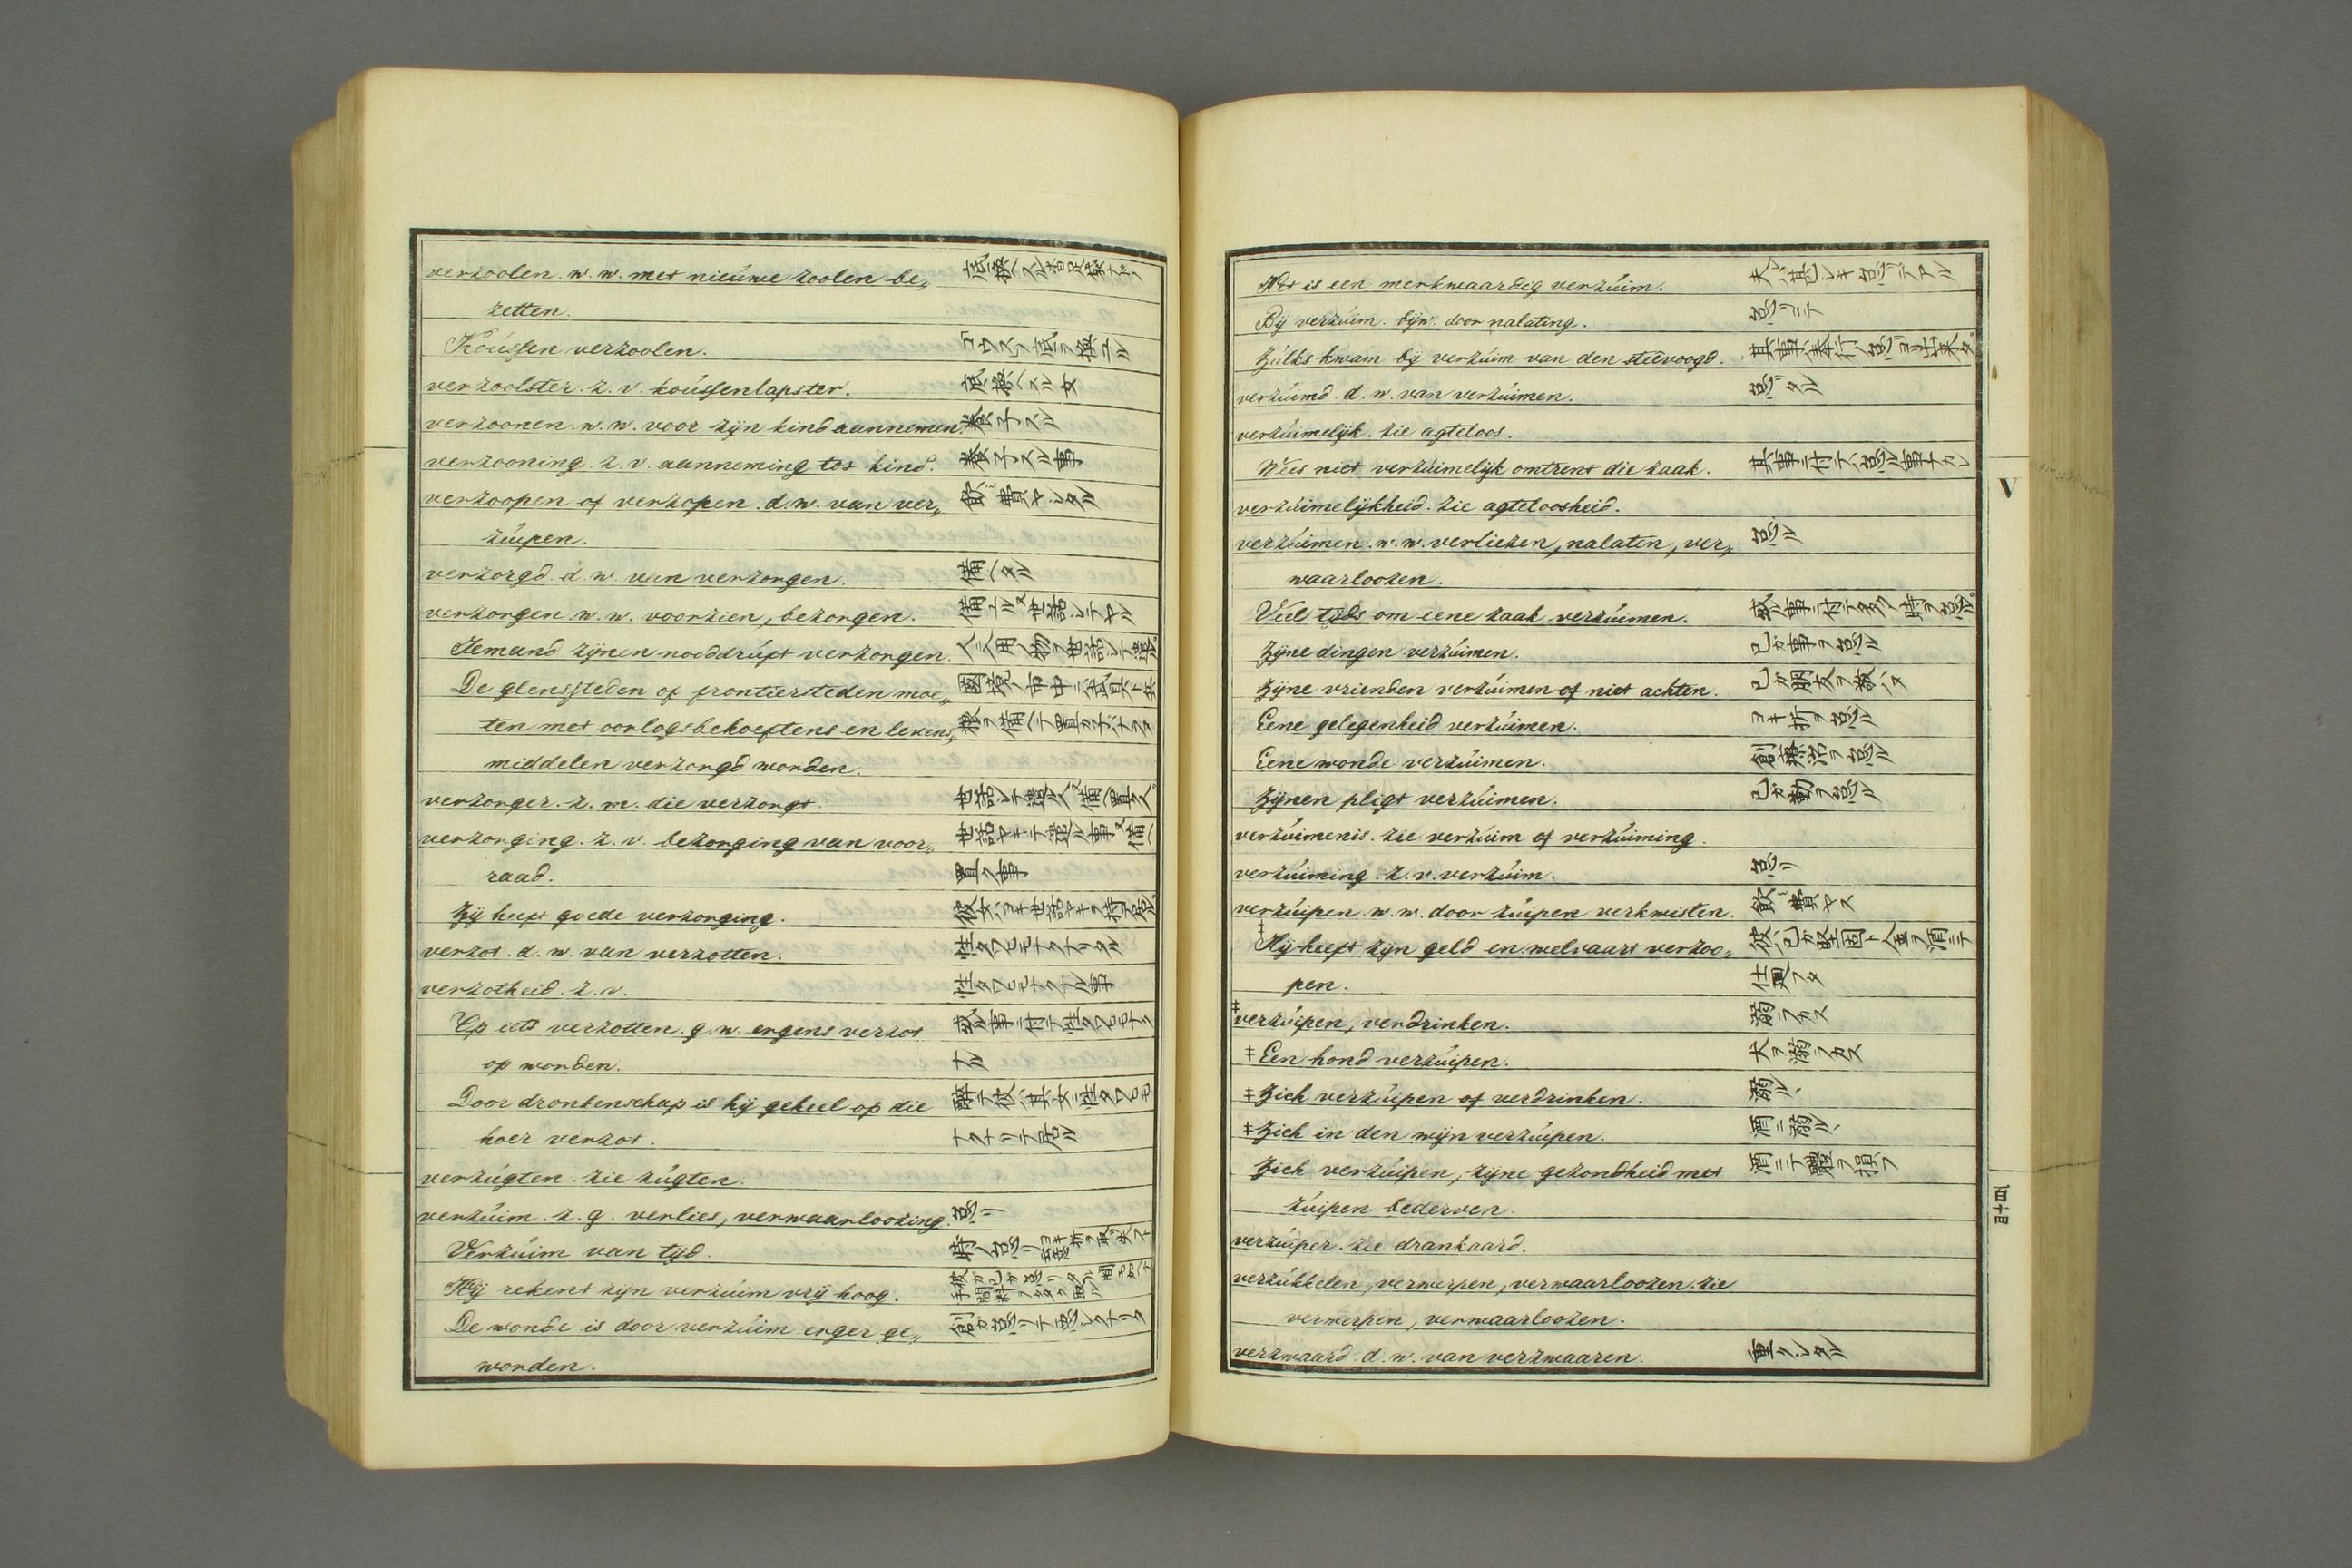 verzoolen. w. w. met nieúwe zoolen be„ 底換ヘスル
zetten.
Koúsſen verzoolen. 底ヲ換エル
verzoolster. z. v. koúsſenlapster. 底換ヘスル女
verzoonen. w. w. voor zijn kind aannemen. 養子スル
verzooning. z. v. aanneming tot kind. 養子スル事
verzoopen of verzopen. d. w. van ver„ 飲ミ費ヤシタル
zúipen.
verzorgd. d. w. van verzorgen. 備ヘタル
verzorgen. w. w. voorzien, bezorgen. 備エル又世話シテヤル
Iemand zijnen nooddrúft verzorgen. 人ニ入用ノ物ヲ世話シテ遣ル
De glensſteden of frontiersteden moe„ 國境ノ市中ニ武具ト兵
ten met oorlogsbehoeftens en levens„ 粮ヲ備ヘテ置カネバナラヌ
middelen verzorgd worden.
verzorger. z. m. die verzorgt. 世話シテ遣ル人又備ヘ置ク人
verzorging. z. v. bezorging van voor„ 世話ヤキテ遣ル事又備ヘ
raad. 置ク事
Zij heeft goede verzorging. 彼女ハヨキ世話ヤキヲ持テ居ル
verzot. d. w. van verzotten. 性タワヒモナクナリタル
verzotheid. z. v. 性タワヒモナクナル事
Op iets verzotten. g. w. ergens verzot 或ル事ニ付テ性タワヒモナク
op worden. ナル
Door dronkenschap is hij geheel op die 醉テ彼ハ其女ニ性タワヒモ
hoer verzot. ナクナリテ居ル
verzúgten. zie zúgten.
verzúim. z. g. verlies, verwaarloozing. 怠リ
Verzúim van tijd. 時ノ怠リ
Hij rekent zijn verzúim vrij hoog.
De wonde is door verzúim erger ge„ 創ガ怠リテ悪シクナリタ
worden.
Het is een merkwaardig verzúim. 夫ハ甚シキ怠リデアル
Bij verzúim. bijw. door nalating. 怠リニテ
Zúlks kwam bij verzúim van den steevoogd. 其事ハ奉行ノ怠リヨリ出來タ
verzúimd. d. w. van verzúimen. 怠リタル
verzúimelijk. zie agteloos.
Wees niet verzúimelijk omtrent die zaak. 其事ニ付テハ怠ル事ナカレ
verzúimelijkheid. zie agteloosheid.
verzúimen. w. w. verliezen, nalaten, ver„ 怠ル
waarloozen.
Veel tijds om eene zaak verzúimen. 或ル事ニ付テ多クノ時ヲ怠ル
Zijne dingen verzúimen. 己ガ事ヲ怠ル
Zijne vrienden verzúimen of niet achten. 己ガ朋友ヲ敬ハヌ
Eene gelegenheid verzúimen. ヨキ折ヲ怠ル
Eene wonde verzúimen. 創療治ヲ怠ル
Zijnen pligt verzúimen. 己ガ勤ヲ怠ル
verzúimenis. zie verzúim of verzúiming.
verzúiming. z. v. verzúim. 怠リ
verzúipen. w. w. door zúipen verkwisten. 飲ミ費ヤス
‡Hij heeft zijn geld en welvaart verzoo„ 彼ハ己ガ堅固ト金ヲ酒ニテ
pen. 仕舞フタ
‡verzúipen, verdrinken. 溺ラカス
‡Een hond verzúipen. 犬ヲ溺ラカス
‡Zich verzúipen of verdrinken. 溺ルヽ
‡Zich in den wijn verzúipen. 酒ニ溺ルヽ
Zich verzúipen, zijne gezondheid met 酒ニテ軆ヲ損フ
zúipen bederven.
verzúiper. zie drankaard.
verzúkkelen, verwerpen, verwaarloozen. zie
verwerpen, verwaarloozen.
verzwaard. d. w. van verzwaaren. 重クシタル
V